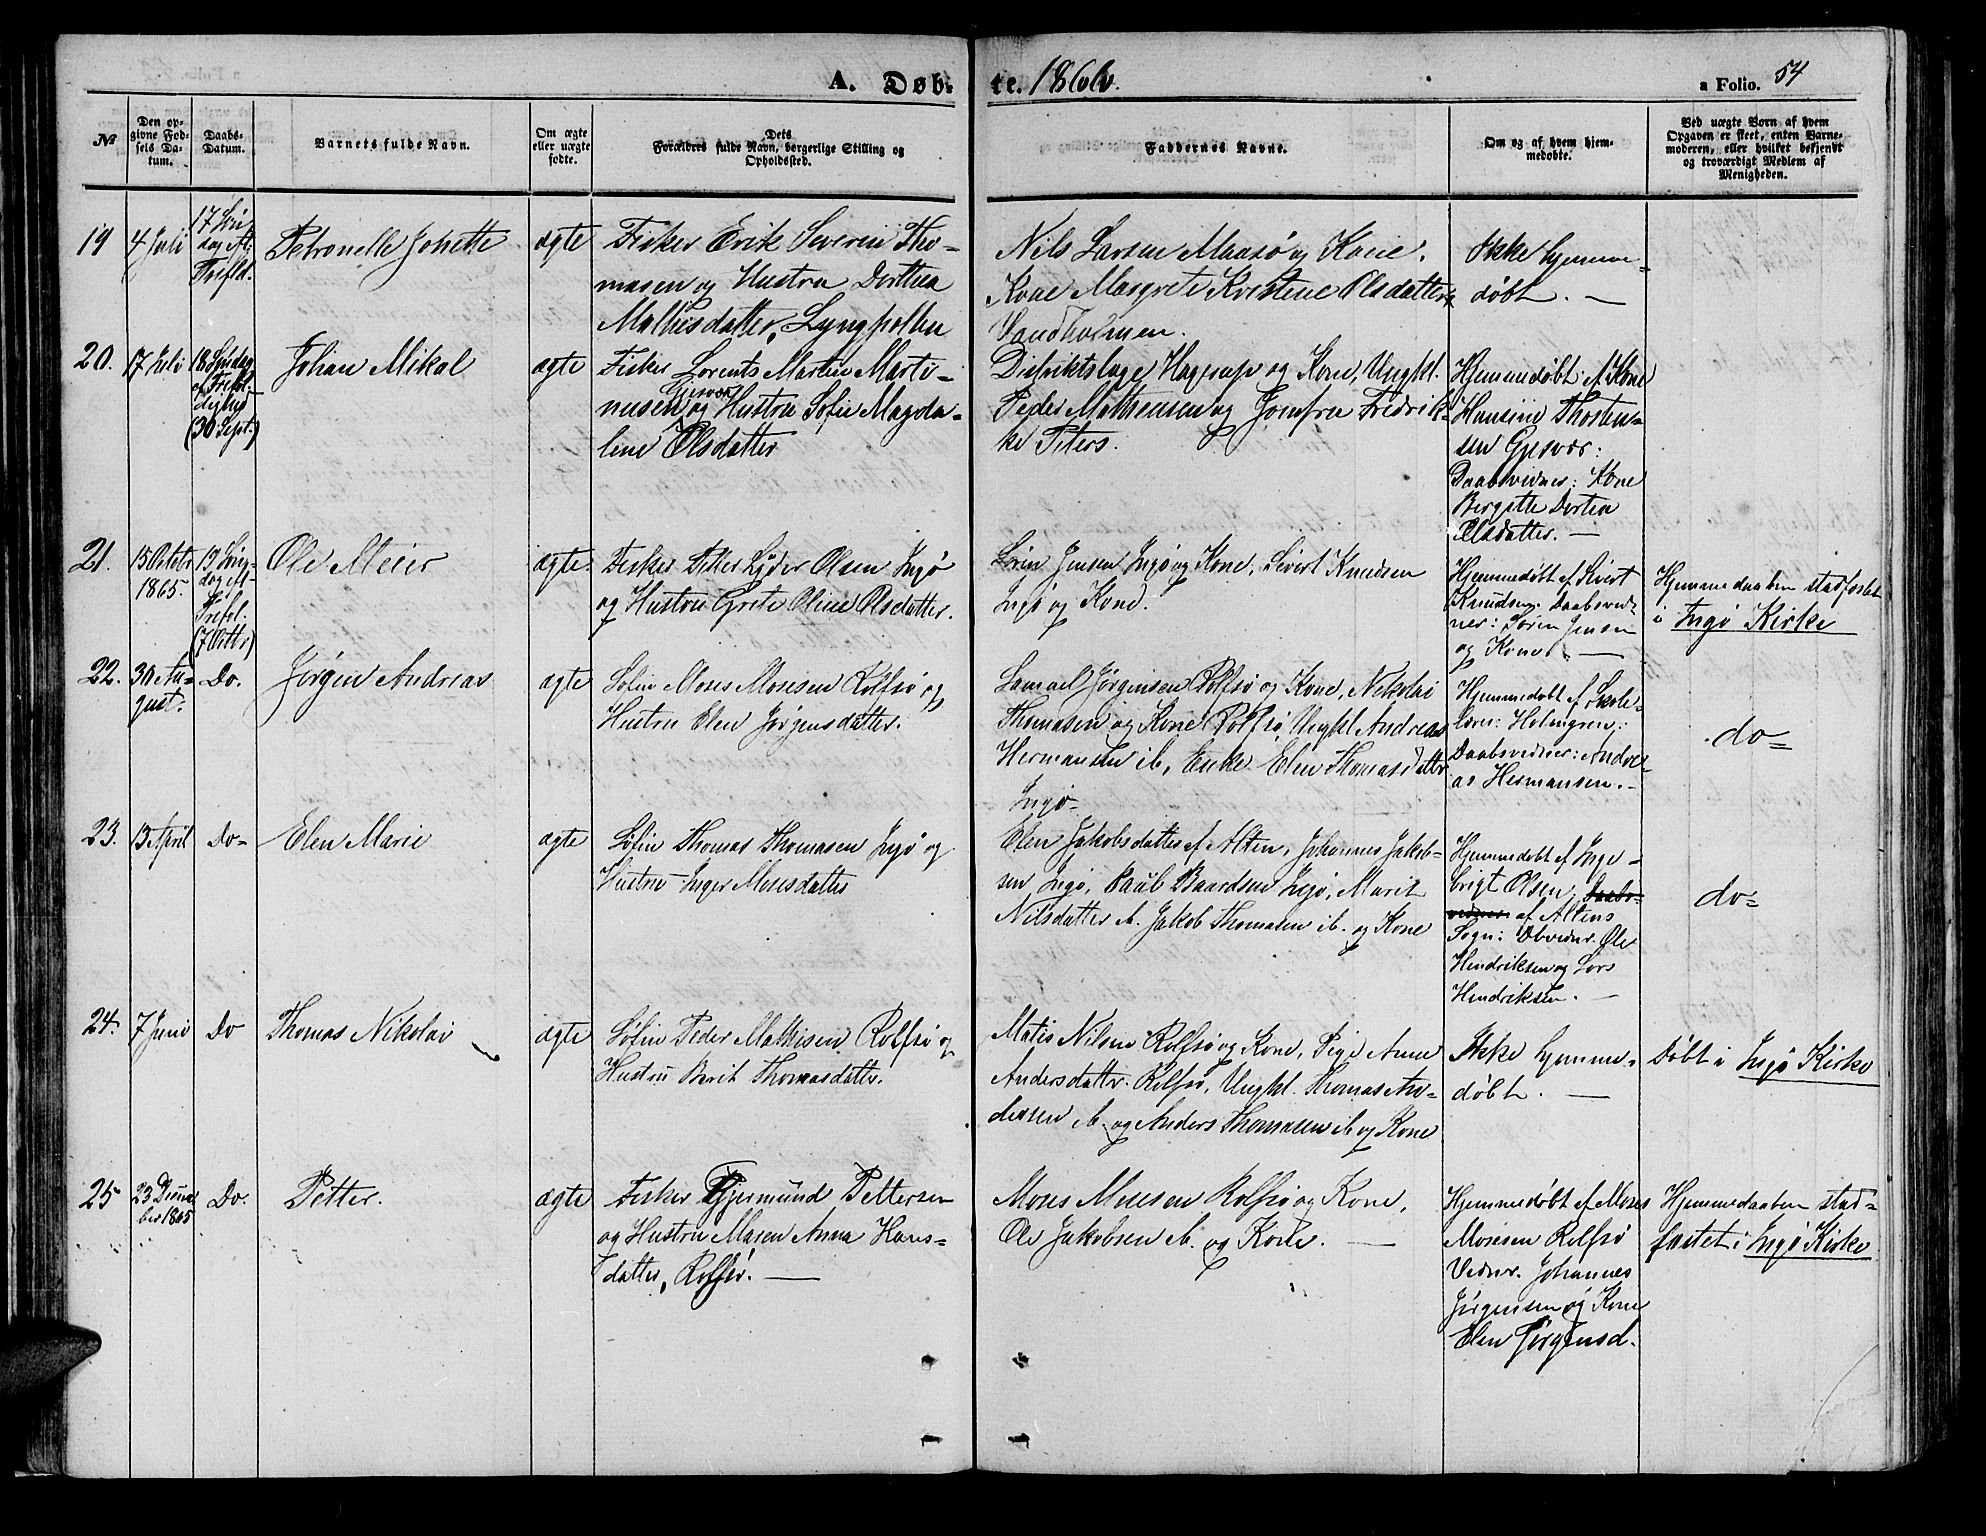 A. Døb-
te. 1866.
a Folio. 54
№
Den op-
givne Fød-
sels Da-
tum.
Daabs-
Datum.
Barnets fulde Navn.
Om ægte
eller uægte
fødte.
Dets
Forældres fulde Navn, borgerlige Stilling og
Opholdssted.
Faddernes Navne.
Om og af hvem hjem-
medøbte.
Ved uægte Børn af hvem
Opgaven er skeet, enten Barne-
moderen, eller hvilket bekjendt
og troværdigt Medlem af
Menigheden.
19
4 Juli
17 Søn
dag eft.
Trefld.
Petronelle Johette
ægte
Fisker Erik Severin Tho-
masen og Hustru Dorthea
Mathisdatter, Lyngpollen
Nils Larsen Maasø og Kone.
Kone Margrete Kristine Olsdatter
Sandholmen.
Ikke hjemme-
døbt. —
20.
17 Juli
18 Søndag
ef Trefol.
dighed
(30 Sept.)
Johan Mikal
ægte
Fisker Lorents Martin Marti-
nusen Gjesvær og Hustru Sofie Magda-
lene Olsdatter
Distriktslæge Hagerup og Kone, Ungkl.
Peder Mathensen og Jomfru Fredrik-
ke Peters.
Hjemmedøbt af Kone
Hansine Thosten-
sen Gjesvær:
Daabsvidner: Kone
Bergette Dortea
Olsdatter. —
21.
15 Octobr
1865.
19 Søn-
dag eft.
Trefol.
(7 Octbr)
Ole Meier
ægte
Fisker Petter Lyder Olsen Ingø
og Hustru Grete Oline Olsdatter.
Sørin Jensen Ingø og Kone, Sivert Knudsen
Ingø og Kone.
Hjemmedøbt af Sivert
Knudsen. Daabsvid-
ner: Søren Jensen
og Kone. —
Hjemmedaaben stadfæstet
i Ingø Kirke
22.
30 Au-
gust.
Do.
Jørgen Andreas
ægte
Søfin Moses Mosesen Rolfsø og
Hustru Elen Jørgensdatter.
Samuel Jørgensen Rolfsø og Kone, Nikolai
Thomasen og Kone Rolfsø, Ungkl Andreas
Hermansen ib, Enke Elen Thomasdattr
Ingø
Hjemmedøbt af Skole-
lærer: Holmgren:
Daabsvidner: Andre-
as Hermansen. -
do=
23.
13 April
Do-
Elen Marie
ægte
Søfin Thomas Thomasen Ingø og
Hustru Inger Mosesdatter
Elen Jakobsdatter af Alten, Johannes Jakob-
sen Ingø, Paul Baardsen Ingø, Marit
Nilsdatter ib. Jakob Thomasen ib. og Kone
Hjemmedøbt af Inge-
brigt Olsen, Daabs-
vidner af Altens
Sogn: Dbvidnr. Ole
Hendriksen og Lars
Hendriksen. —
do=
24.
7 Juni
Do
Thomas Nikolai
ægte
Søfin Peder Mathisen Rolfsø og
Hustru Berit Thomasdatter.
Matis Nilsen Rolfsø og Kone, Pige Anne
Andersdattr. Rolfsø, Ungkl. Thomas An-
dersen ib. og Anders Thomasen ib og Kone
Ikke hjemme-
døbt. —
Døbt i Ingø Kirke
25
23 Decem
ber 1865
Do.
Petter.
ægte
Fisker Gjermund Pettersen
og Hustru Maren Anna Hans-
datter, Rolfsø. —
Moses Mosesen Rolfsø og Kone,
Ole Jakobsen ib. og Kone. —
Hjemmedøbt af Moses
Mosesen Rolfsø
Vidnr. Johannes
Jørgensen og Kone
Elen Jørgensd.
Hjemmedaaben stad-
fæstet i Ingø Kirke